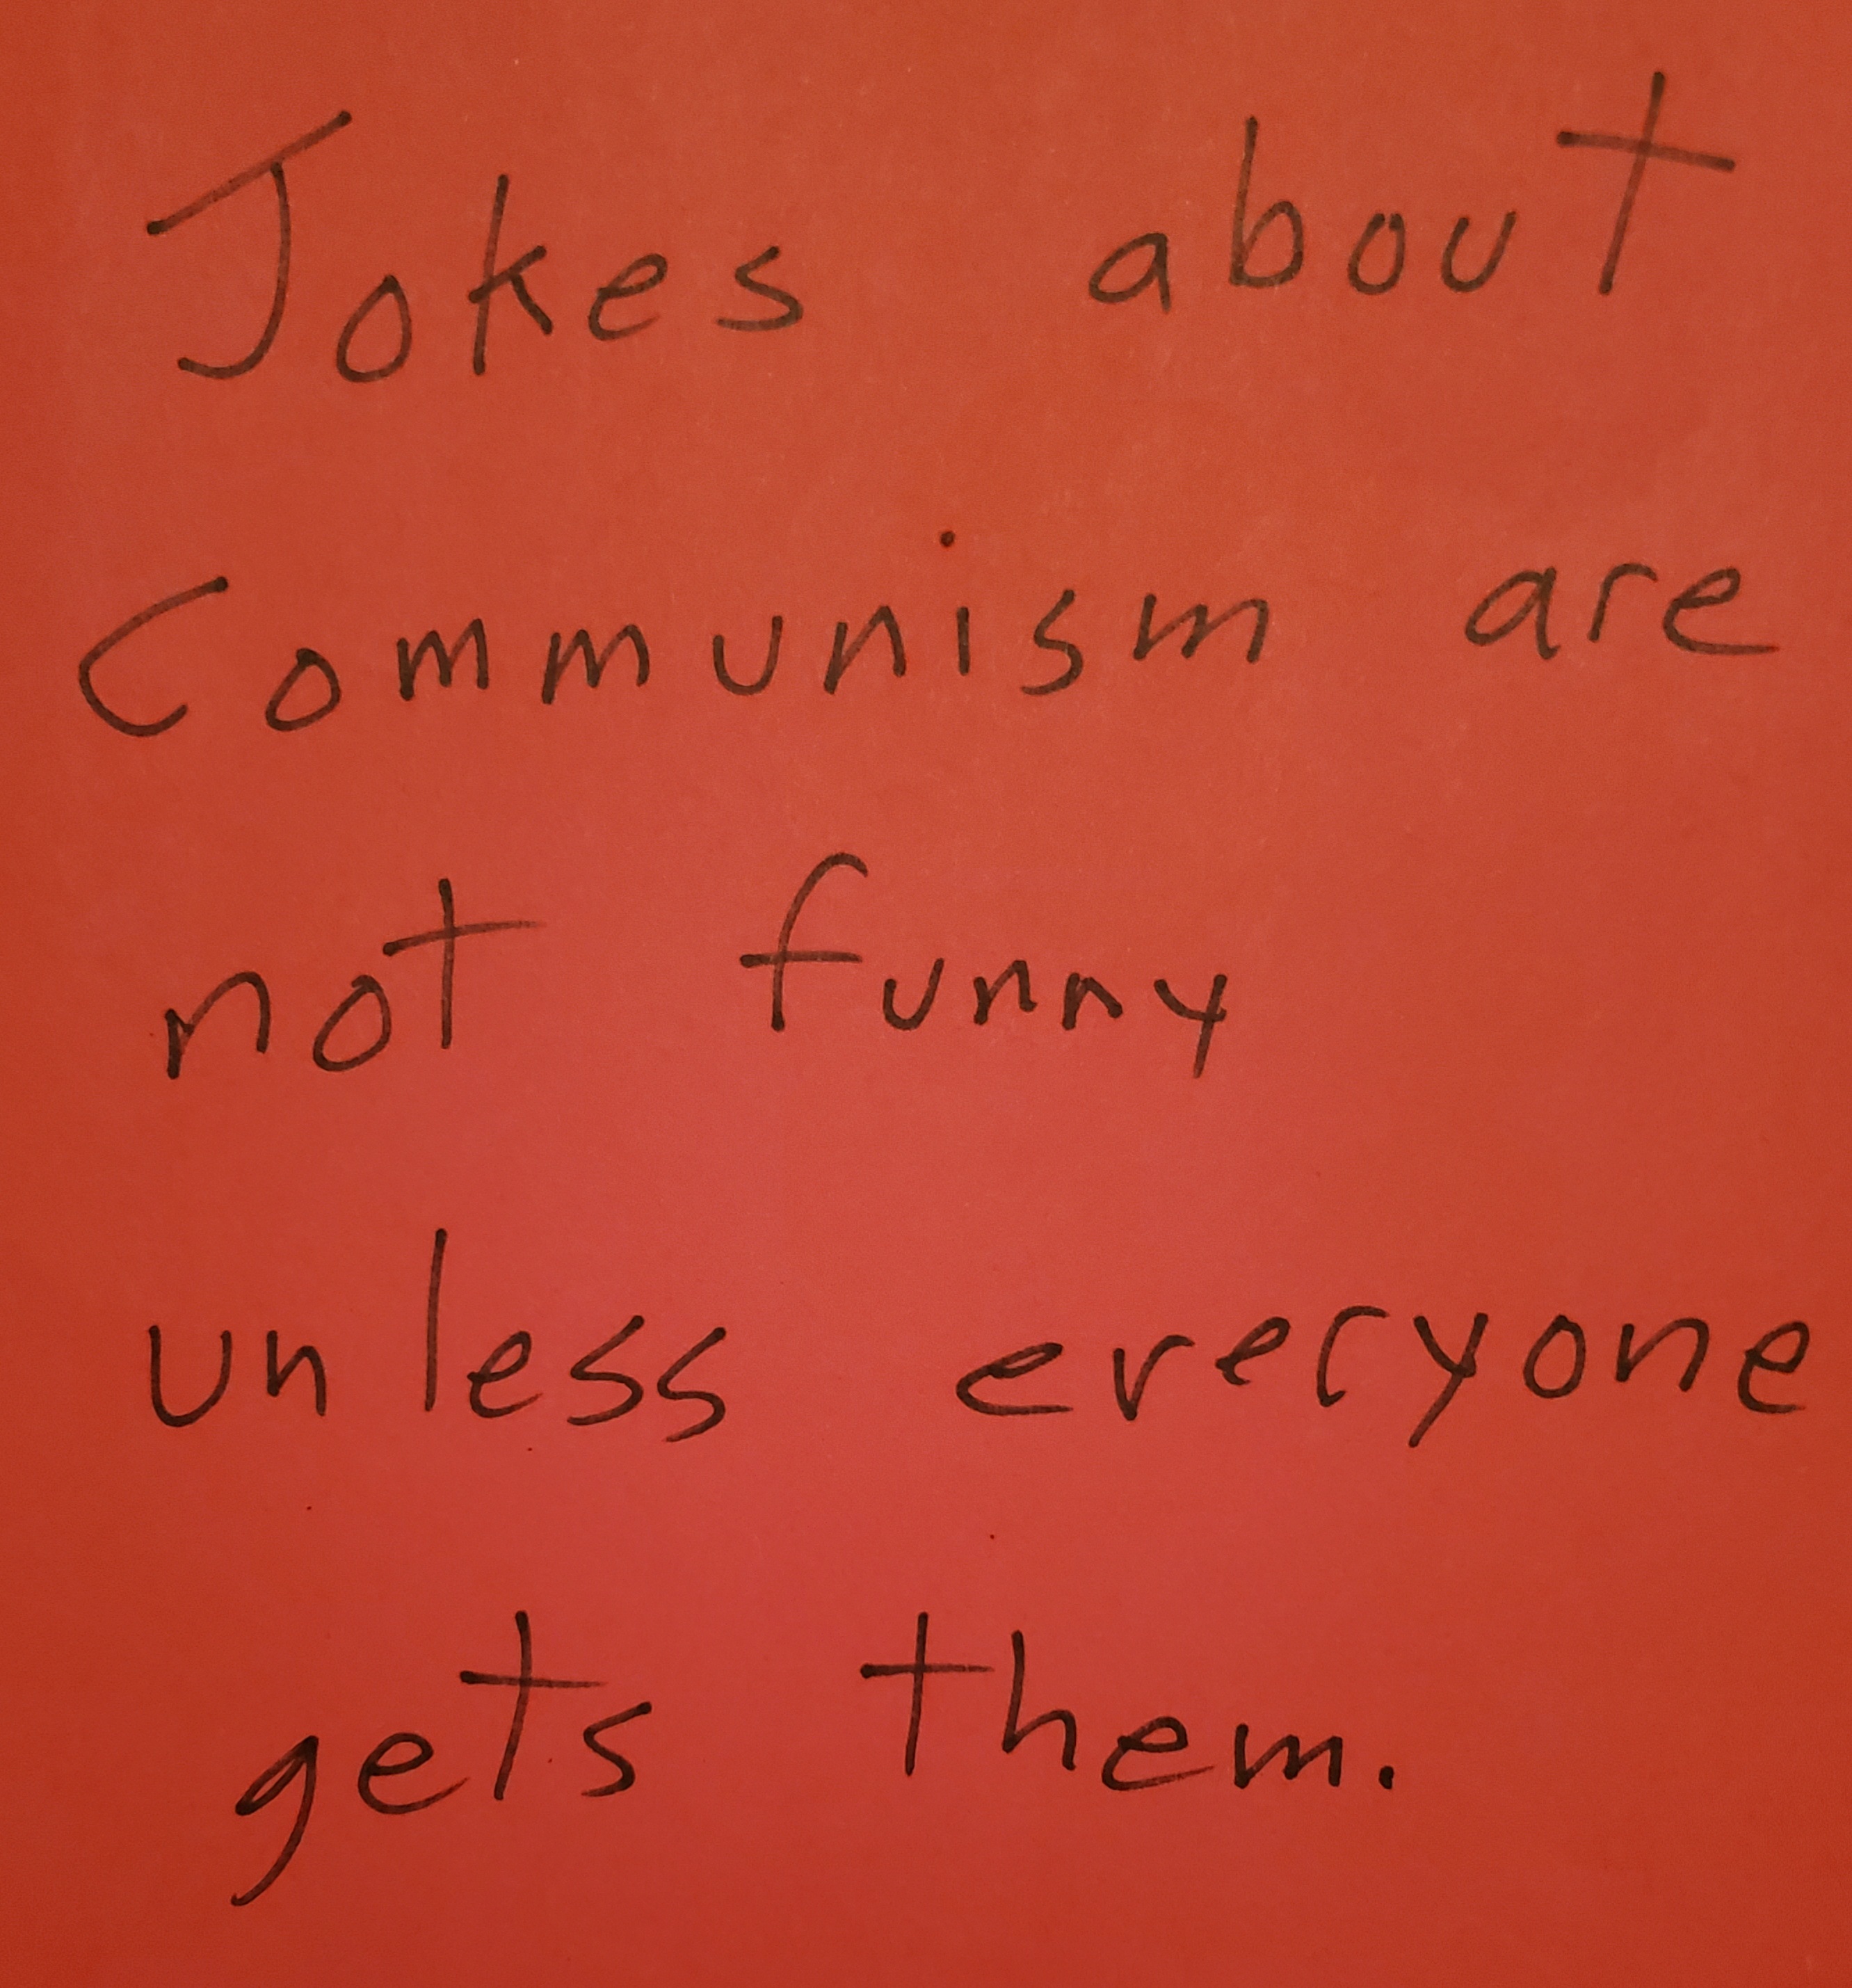 Jokes about
Communism are
not funny
unless everyone
gets them.